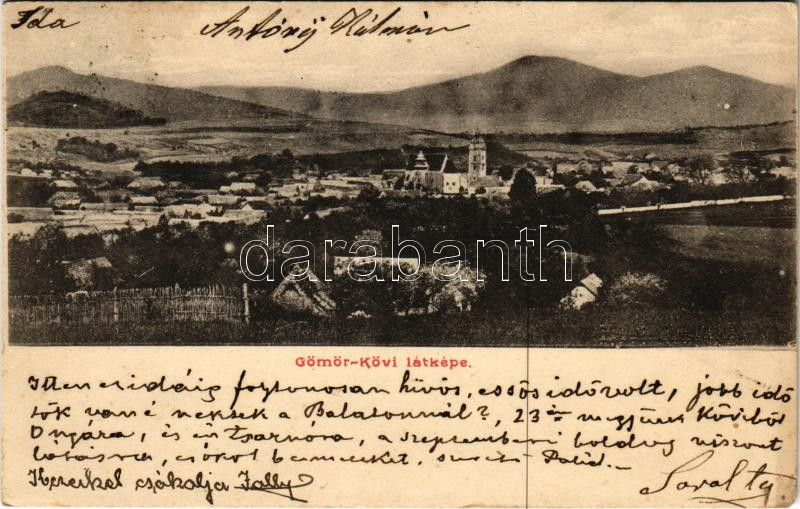 Ida
Antónij Kálmán
darabanth
Gömör-Kövi látképe.
Itten ezideig folytonosan hűvös, essős idő volt, jobb idő
tök van é neksek a Balatonnál?, 23 án megyünk Köviből
Ongára, és én Tsarnóra, a szeptemberi boldog viszont
látásra, csókol benneteket,
Kezeiket csókolja